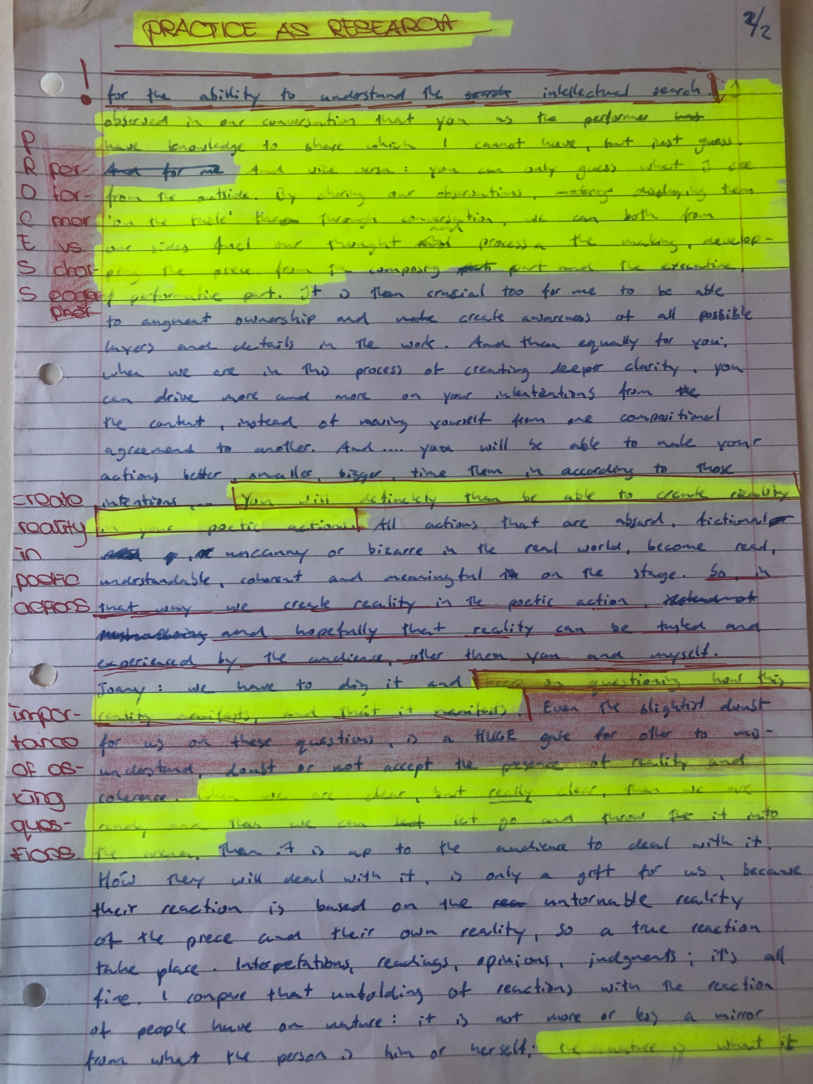 PRACTICE AS RESEARCH
2/2
! for the ability to understand the search intellectual search. I
observed in our conversation that you as the performer has
have knowledge to share which I cannot have, but just guess.
And for me And vice versa: you can only guess what I see
from the outside. By sharing our observations, making displaying them
'on the table' through conversation, we can both from
our sides fuel our thought and process & the making, develop-
ping the piece from the composing part part and the executive,
performatic part. It is then crucial too for me to be able
to augment ownership and make create awareness of all possible
layers and details in the work. And then equally for you:
when we are in this process of creating deeper clarity, you
can drive more and more on your intententions from the
the content, instead of moving yourself from one compositional
agreement to another. And .... you will be able to make your
actions better, smaller, bigger, time them in according to those
intentions ... You will definetely than be able to create reality
in your poetic actions. All actions that are absurd, fictional or
uncanny or bizarre in the real world, become real,
understandable, coherent and meaningful on the stage. So, in
that way we create reality in the poetic action,
and hopefully that reality can be tasted and
experienced by the audience, other then you and myself.
Joany: we have to dig it and keep on questioning how this
reality manifests, and that it manifests. Even the slightist doubt
for us on these questions, is a HUGE gate for other to mis-
understand, doubt or not accept the presence of reality and
coherence. When we are clear, but really clear, than we are
ready and then we can let go and throw it into
the arena. Then it is up to the audience to deal with it.
How they will deal with it, is only a gift for us, because
their reaction is based on the untornable reality
of the piece and their own reality, so a true reaction
take place. Interpretations, readings, opinions, judgments; it's all
fine. I compare that unfolding of reactions with the reaction
of people have on nature: it is not more or less a mirror
from what the person is him or herself; the nature is what it
PROCESS
per-
for-
mer
vs.
chor-
eogra
pher
create
reality
in
poetic
actions
impor-
tance
of as-
king
ques-
tions